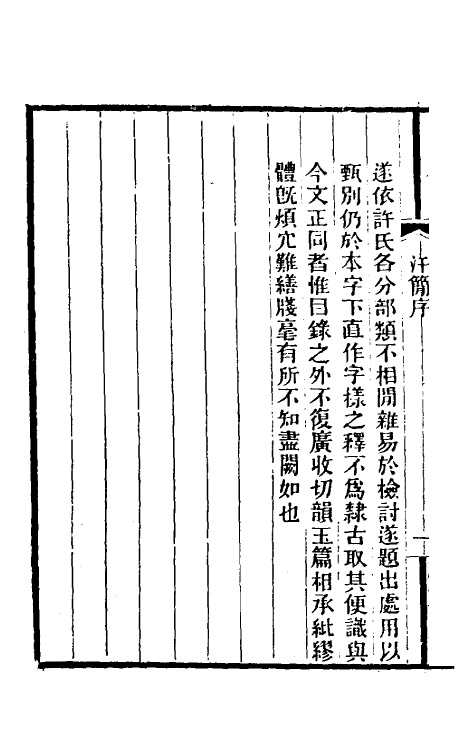 汗簡序
遂依許氏各分部類不相閒雜易於檢討遂題出處用以
甄別仍於本字下直作字様之釋不爲隸古取其便識與
今文正同者惟目錄之外不復廣收切韻玉篇相承紕繆
體旣煩冗難繕牋毫有所不知盡闕如也